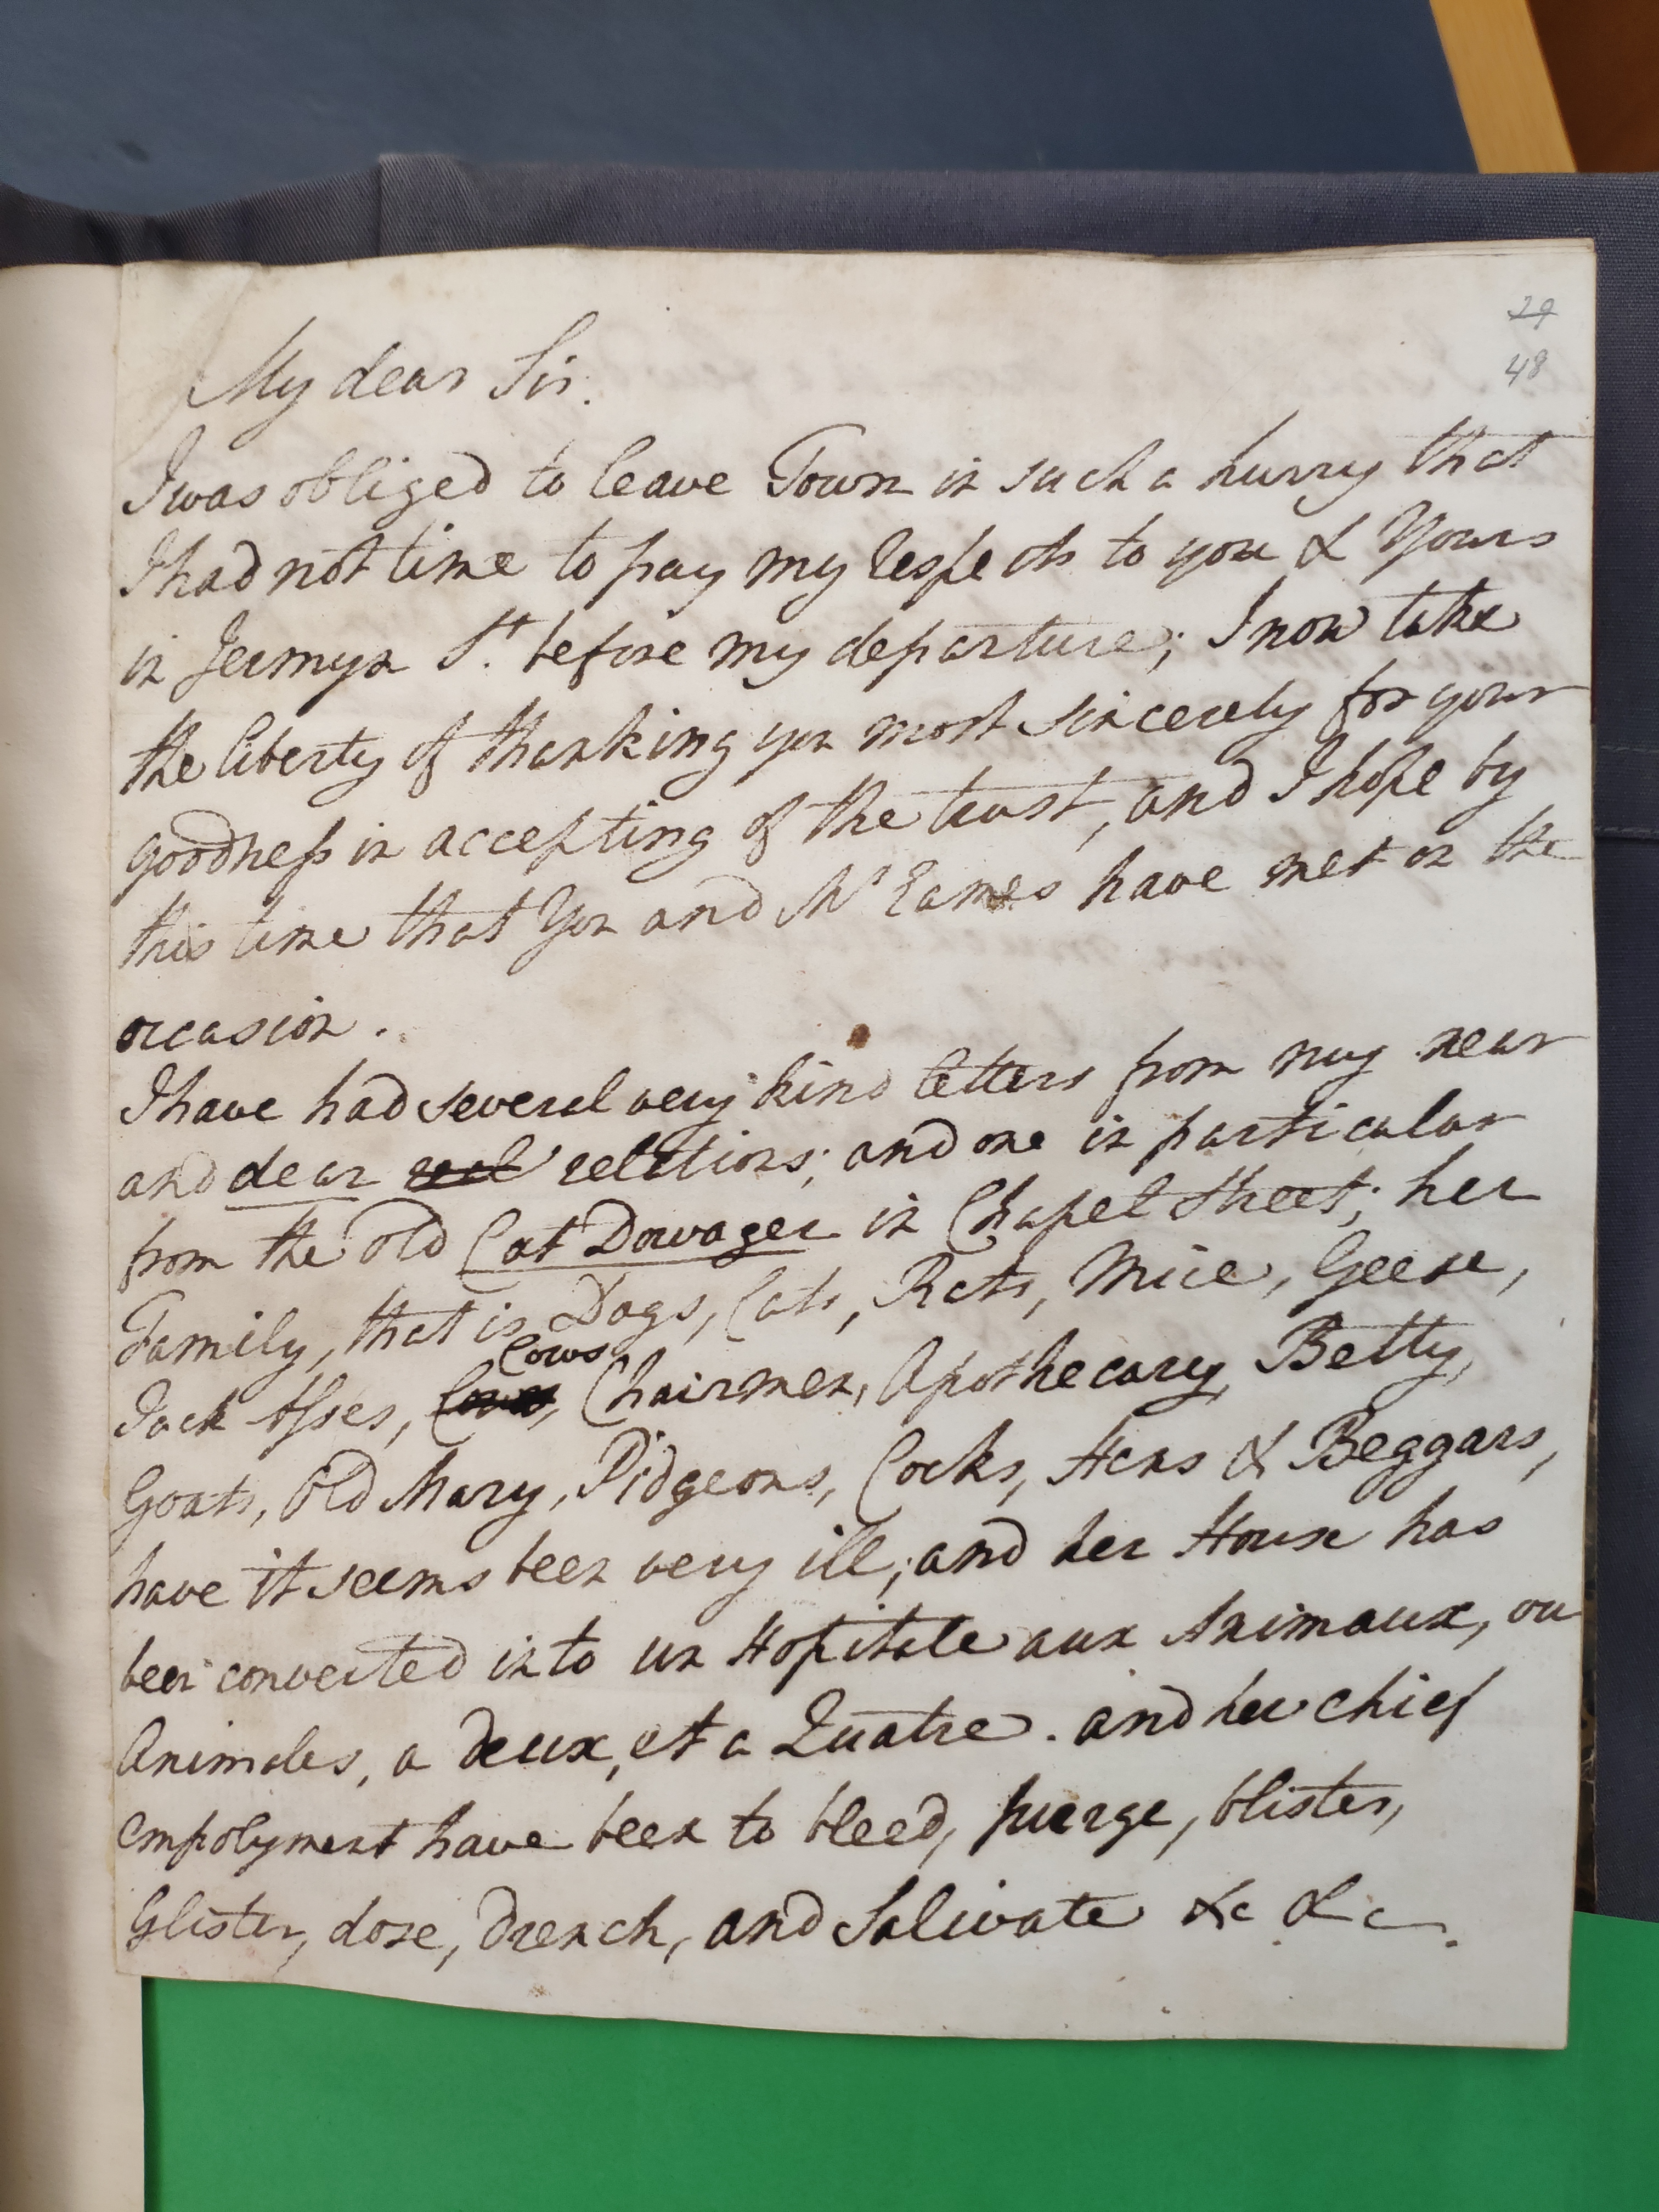 29
48
My dear Sir.
I was obliged to leave Town in such a hurry that
I had not time to pay my respects to you & Yours
in Jermyn St. before my departure; I now take
the liberty of thanking you most sincerely for your
goodness in accepting of the trust, and I hope by
this time that You and Mr Eames have met on the
occasion.
I have had several very kind letters from my near
and dear rel relations; and one in particular
from the old Cat Dowager in Chapel Street; her
Family, that is Dogs, Cats, Rats, Mice, Geese,
Cows
Jack Asses, Cows, Chairmen, Apothecary, Betty,
Goats, Old Mary, Pidgeons, Cocks, Hens & Beggars,
have it seems been very ill; and her House has
been converted into un Hopitale aux Animaux, ou
Animales, a deux, et a Quatre. and her chief
empolyment have been to bleed, purge, blister,
Glister, dose, drench, and Salivate &c &c.